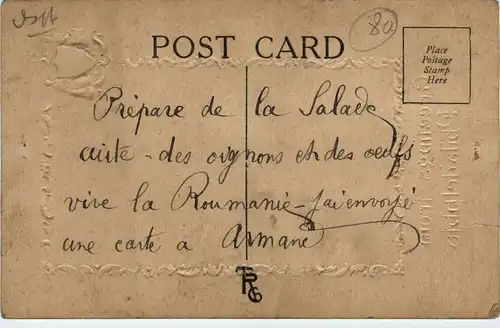 80
POST CARD
Place
Postage
Stamp
Here
Prépare de la Salade
cuite - des oignons et des oeufs
vive la Roumanie - j'ai envoyé
une carte à Armane
TRC